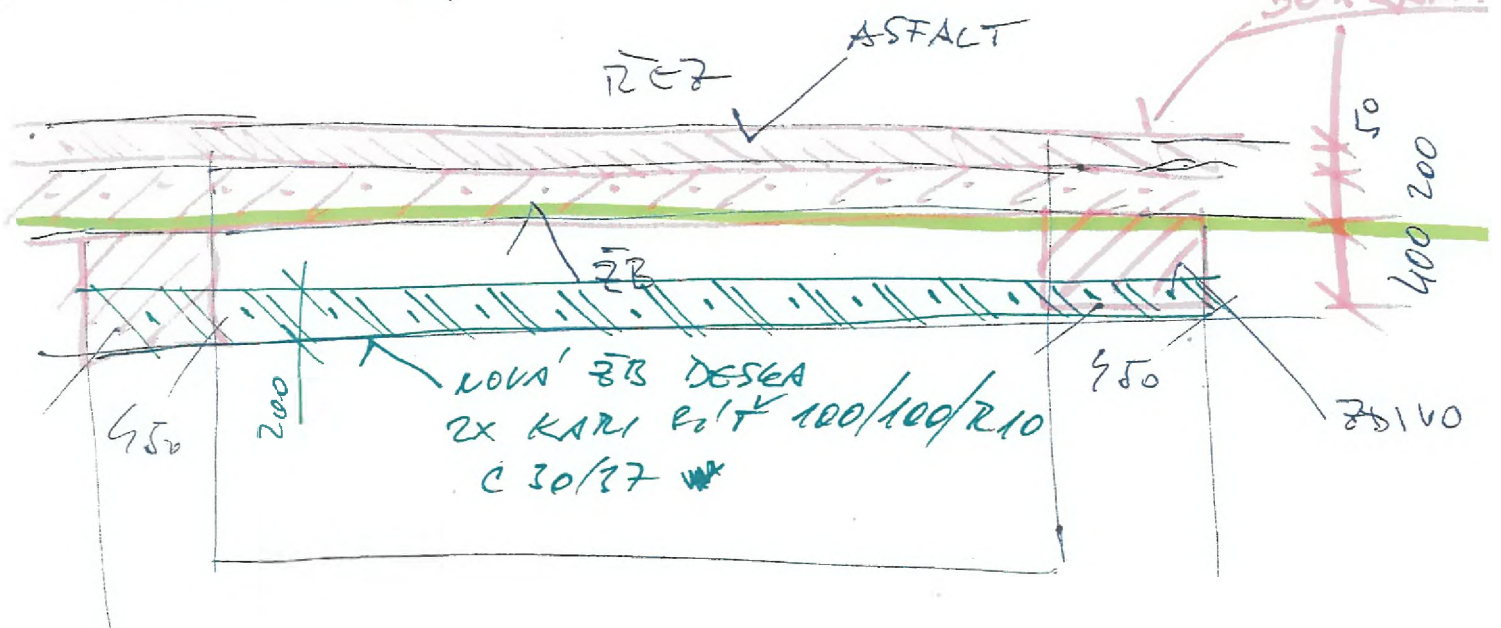 ASFALT
ŘEZ
50
200
400
ŽB
NOVÁ ŽB DESKA
2X KARI SÍŤ 100/100/R10
C 30/37
200
450
450
ZDIVO